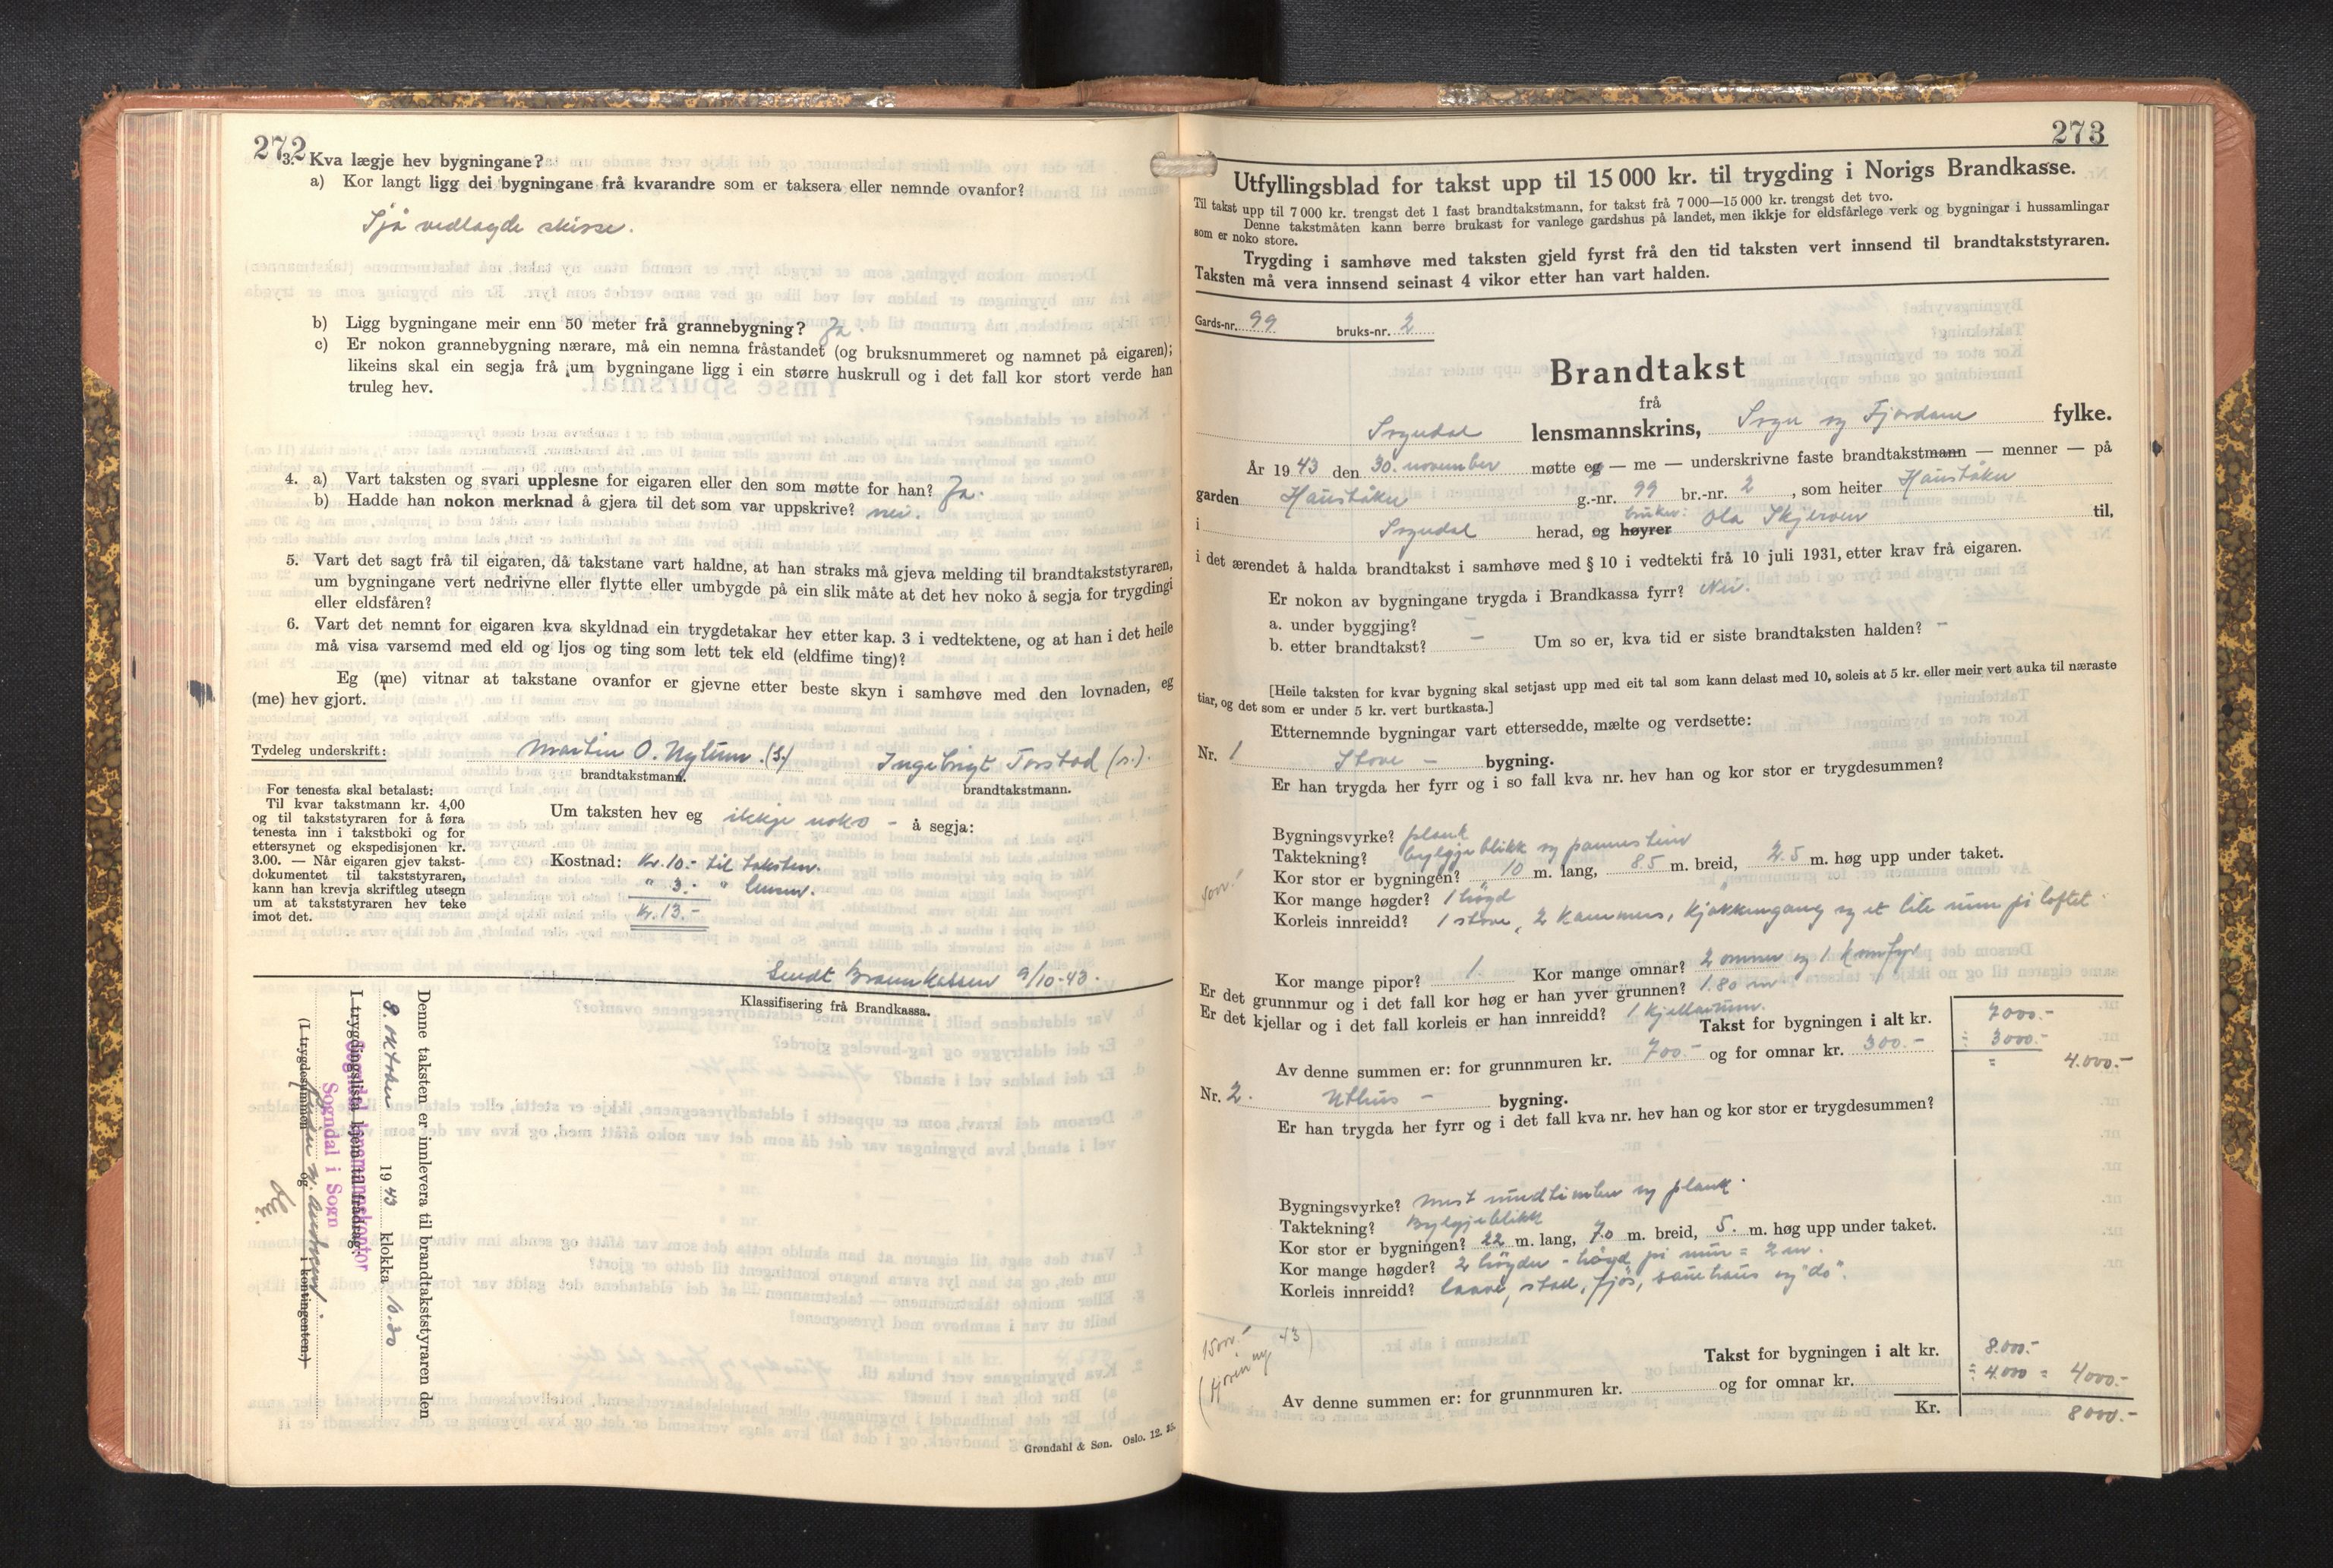 272
3. Kva lægje hev bygningane?
a) Kor langt ligg dei bygningane frå kvarandre som er taksera eller nemnde ovanfor?
Sjå vedlagde skisse.
b) Ligg bygningane meir enn 50 meter frå grannebygning? Ja.
c) Er nokon grannebygning nærare, må ein nemna fråstandet (og bruksnummeret og namnet på eigaren);
likeins skal ein segja frå um bygningane ligg i ein større huskrull og i det fall kor stort verde han
truleg hev.
4. a) Vart taksten og svari upplesne for eigaren eller den som møtte for han? Ja.
b) Hadde han nokon merknad å gjera til det som var uppskrive? nei.
5. Vart det sagt frå til eigaren, då takstane vart haldne, at han straks må gjeva melding til brandtakststyraren,
um bygningane vert nedrivne eller flytte eller umbygde på ein slik måte at det hev noko å segja for trygdingi
eller eldsfåren?
6. Vart det nemnt for eigaren kva skyldnad ein trygdetakar hev etter kap. 3 i vedtektene, og at han i det heile
må visa varsemd med eld og ljos og ting som lett tek eld (eldfime ting)?
Eg (me) vitnar at takstane ovanfor er gjevne etter beste skyn i samhøve med den lovnaden, eg
(me) hev gjort.
Tydeleg underskrift: Martin O. Nylum. (s.) Ingebrigt Forstad (s.).
brandtakstmann. brandtakstmann.
For tenesta skal betalast:
Til kvar takstmann kr. 4,00
og til takststyraren for å føra
tenesta inn i takstboki og for
ettersynet og ekspedisjonen kr.
3.00. — Når eigaren gjev takst-
dokumentet til takststyraren,
kann han krevja skriftleg utsegn
um at takststyraren hev teke
imot det.
Um taksten hev eg ikkje noko - å segja:
Kostnad: Kr. 10.- til taksten.
" 3.- " lensm.
Kr. 13.-
Sendt Brannkassen 9/10-43.
Klassifisering frå Brandkassa.
Denne taksten er innlevera til brandtakststyraren den
8. oktober 1943 klokka 10.30
I trygdingslista kjem til frådrag:
Sogndal lensmannskontor
Sogndal i Sogn
(I trygdesummen og i kontingenten.)
Grøndahl & Søn. Oslo. 12. 35.
273
Utfyllingsblad for takst upp til 15 000 kr. til trygding i Norigs Brandkasse.
Til takst upp til 7 000 kr. trengst det 1 fast brandtakstmann, for takst frå 7 000—15 000 kr. trengst det tvo.
Denne takstmåten kann berre brukast for vanlege gardshus på landet, men ikkje for eldsfårlege verk og bygningar i hussamlingar
som er noko store.
Trygding i samhøve med taksten gjeld fyrst frå den tid taksten vert innsend til brandtakststyraren.
Taksten må vera innsend seinast 4 vikor etter han vart halden.
Gards-nr. 99 bruks-nr. 2
Brandtakst
frå
Sogndal lensmannskrins, Sogn og Fjordane fylke.
År 1943 den 30. november møtte eg — me — underskrivne faste brandtakstmann — menner — på
garden Hauståker g.-nr. 99 br.-nr. 2, som heiter Hauståker
i Sogndal herad, og høyrer bruker: Ola Skjerven til,
i det ærendet å halda brandtakst i samhøve med § 10 i vedtekti frå 10 juli 1931, etter krav frå eigaren.
Er nokon av bygningane trygda i Brandkassa fyrr? Nei.
a. under byggjing? -
b. etter brandtakst? - Um so er, kva tid er siste brandtaksten halden? -
[Heile taksten for kvar bygning skal setjast upp med eit tal som kann delast med 10, soleis at 5 kr. eller meir vert auka til næraste
tiar, og det som er under 5 kr. vert burtkasta.]
Etternemnde bygningar vart ettersedde, mælte og verdsette:
Nr. 1 Stove - bygning.
Er han trygda her fyrr og i so fall kva nr. hev han og kor stor er trygdesummen?
Bygningsvyrke? plank
Taktekning? bylgjeblikk og pannestein
Kor stor er bygningen? 10 m. lang, 8.5 m. breid, 2.5 m. høg upp under taket.
Kor mange høgder? 1 högd
Korleis innreidd? 1 stove, 2 kammers, kjøkkengang og et lite rum på loftet.
Kor mange pipor? 1 Kor mange omnar? 2 omner og 1 komfyr
Er det grunnmur og i det fall kor høg er han yver grunnen? 1.80 m.
Er det kjellar og i det fall korleis er han innreidd? 1 kjellarrum.
Takst for bygningen i alt kr. 7000.-
Av denne summen er: for grunnmuren kr. 700.- og for omnar kr. 300.- ÷ 3000.- = 4.000.-
Nr. 2. Uthus - bygning.
Er han trygda her fyrr og i det fall kva nr. hev han og kor stor er trygdesummen?
Bygningsvyrke? mest mudtimber og plank.
Taktekning? Bylgjeblikk
Kor stor er bygningen? 22 m. lang, 7.0 m. breid, 5. m. høg upp under taket.
Kor mange høgder? 2 högder - högd på mur = 2 m.
Korleis innreidd? laave, stall, fjøs, sauehaus og "do".
Takst for bygningen i alt kr. 8.000.-
÷ 4.000 = 4000.-
Av denne summen er: for grunnmuren kr. og for omnar kr.
Kr. 8000.-